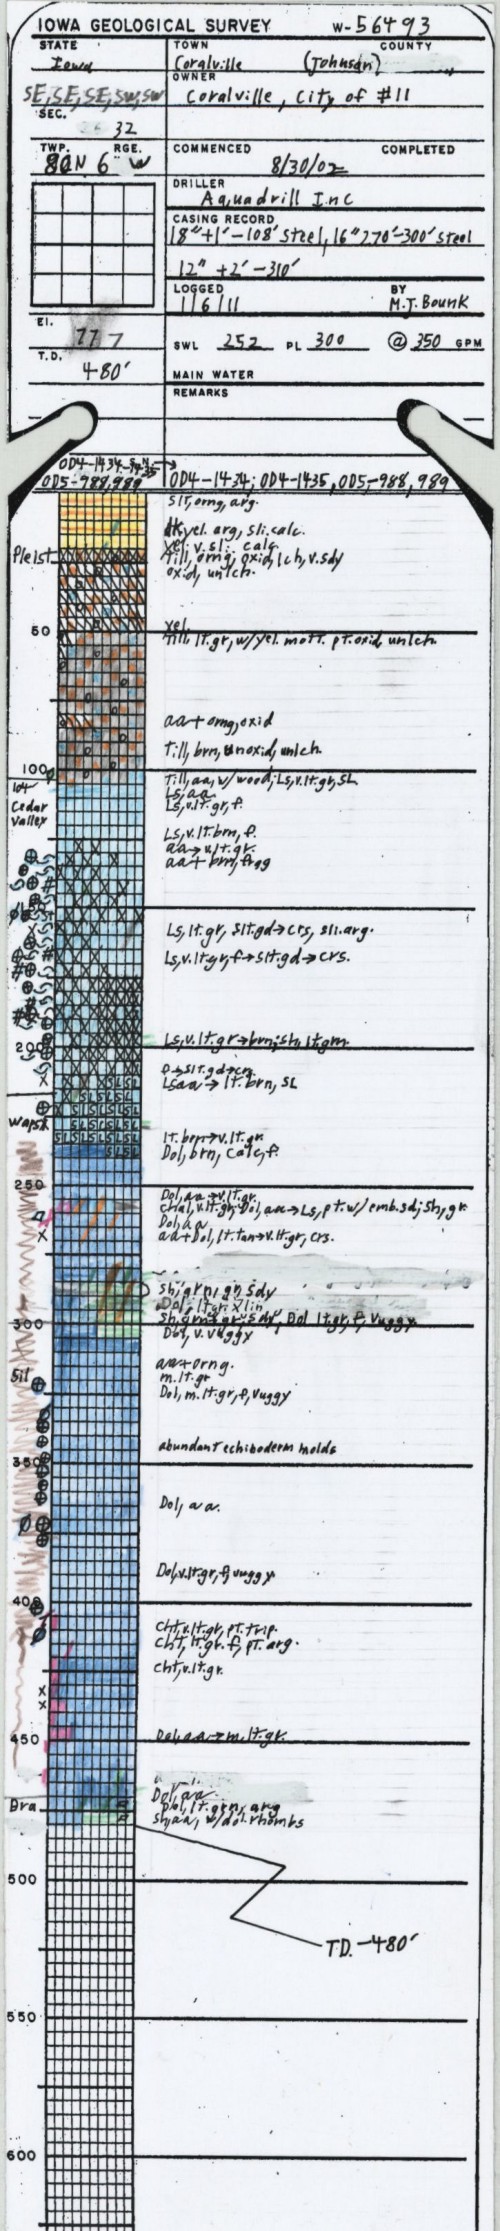 IOWA GEOLOGICAL SURVEY W-56493
STATE TOWN COUNTY
Iowa Coralville (Johnson)
OWNER
SE, SE, SE, SW, SW Coralville, City of #11
SEC.
32
TWP. RGE. COMMENCED COMPLETED
80N 6 W 8/30/02
DRILLER
Aquadrill Inc
CASING RECORD
18"+1'-108' Steel, 16" 270'-300' Steel
12" +2'-310'
LOGGED BY
1/6/11 M.J. Bounk
El.
777
SWL 252 PL 300 @ 350 GPM
T.D.
480'
MAIN WATER
REMARKS
OD4-1434
OD5-988,989 OD4-1434; OD4-1435, OD5-988, 989
Slt, orng, arg.
dk yel. arg, sli. calc.
yel. v. sli. calc
Pleist Till, orng, oxid, lch, v.sdy
oxid, unlch.
yel.
50
Till, lt.gr, w/yel. mott. pt. oxid, unlch
aa + orng, oxid
Till, brn, unoxid, unlch.
100
Till, aa, w/wood; Ls, v.lt.gr, SL
104
Ls, aa
Cedar Valley
Ls, v.lt.gr, f.
Ls, v.lt.brn, f.
aa→v.lt.gr.
aa + brn, frgg
Ls, lt.gr, slt.gd→crs, sli.arg.
Ls, v.lt.gr, f→slt.gd→crs.
Ls, v.lt.gr→brn; sh, lt.grn
200
f→slt.gd→crs
Ls aa → lt. brn, SL
Wapsi.
lt. brn→v.lt.gr.
Dol, brn, calc, f.
250
Dol, aa→v.lt.gr.
chal, v.lt.gr; Dol, aa→Ls, pt. w/emb.sd; Sh, gr.
Dol, aa
aa + Dol, lt.tan→v.lt.gr, crs.
Sh, grn, gr, Sdy
Dol, lt.gr, xlin
Sh, grn + gr, Sdy, Dol lt.gr, f, vuggy
300
Dol, v. vuggy
aa + orng.
Sil m.lt.gr
Dol, m.lt.gr, f, vuggy
abundant echinoderm molds
350
Dol, aa
Dol, v.lt.gr, f, vuggy
400
cht, v.lt.gr, pt. trip.
cht, lt.gr. f, pt. arg.
cht, v.lt.gr.
450
Dol, aa→m.lt.gr.
Dol, aa
Bra Dol, lt.grn, arg
sh, aa, w/dol. rhombs
500
TD. -480'
550
600